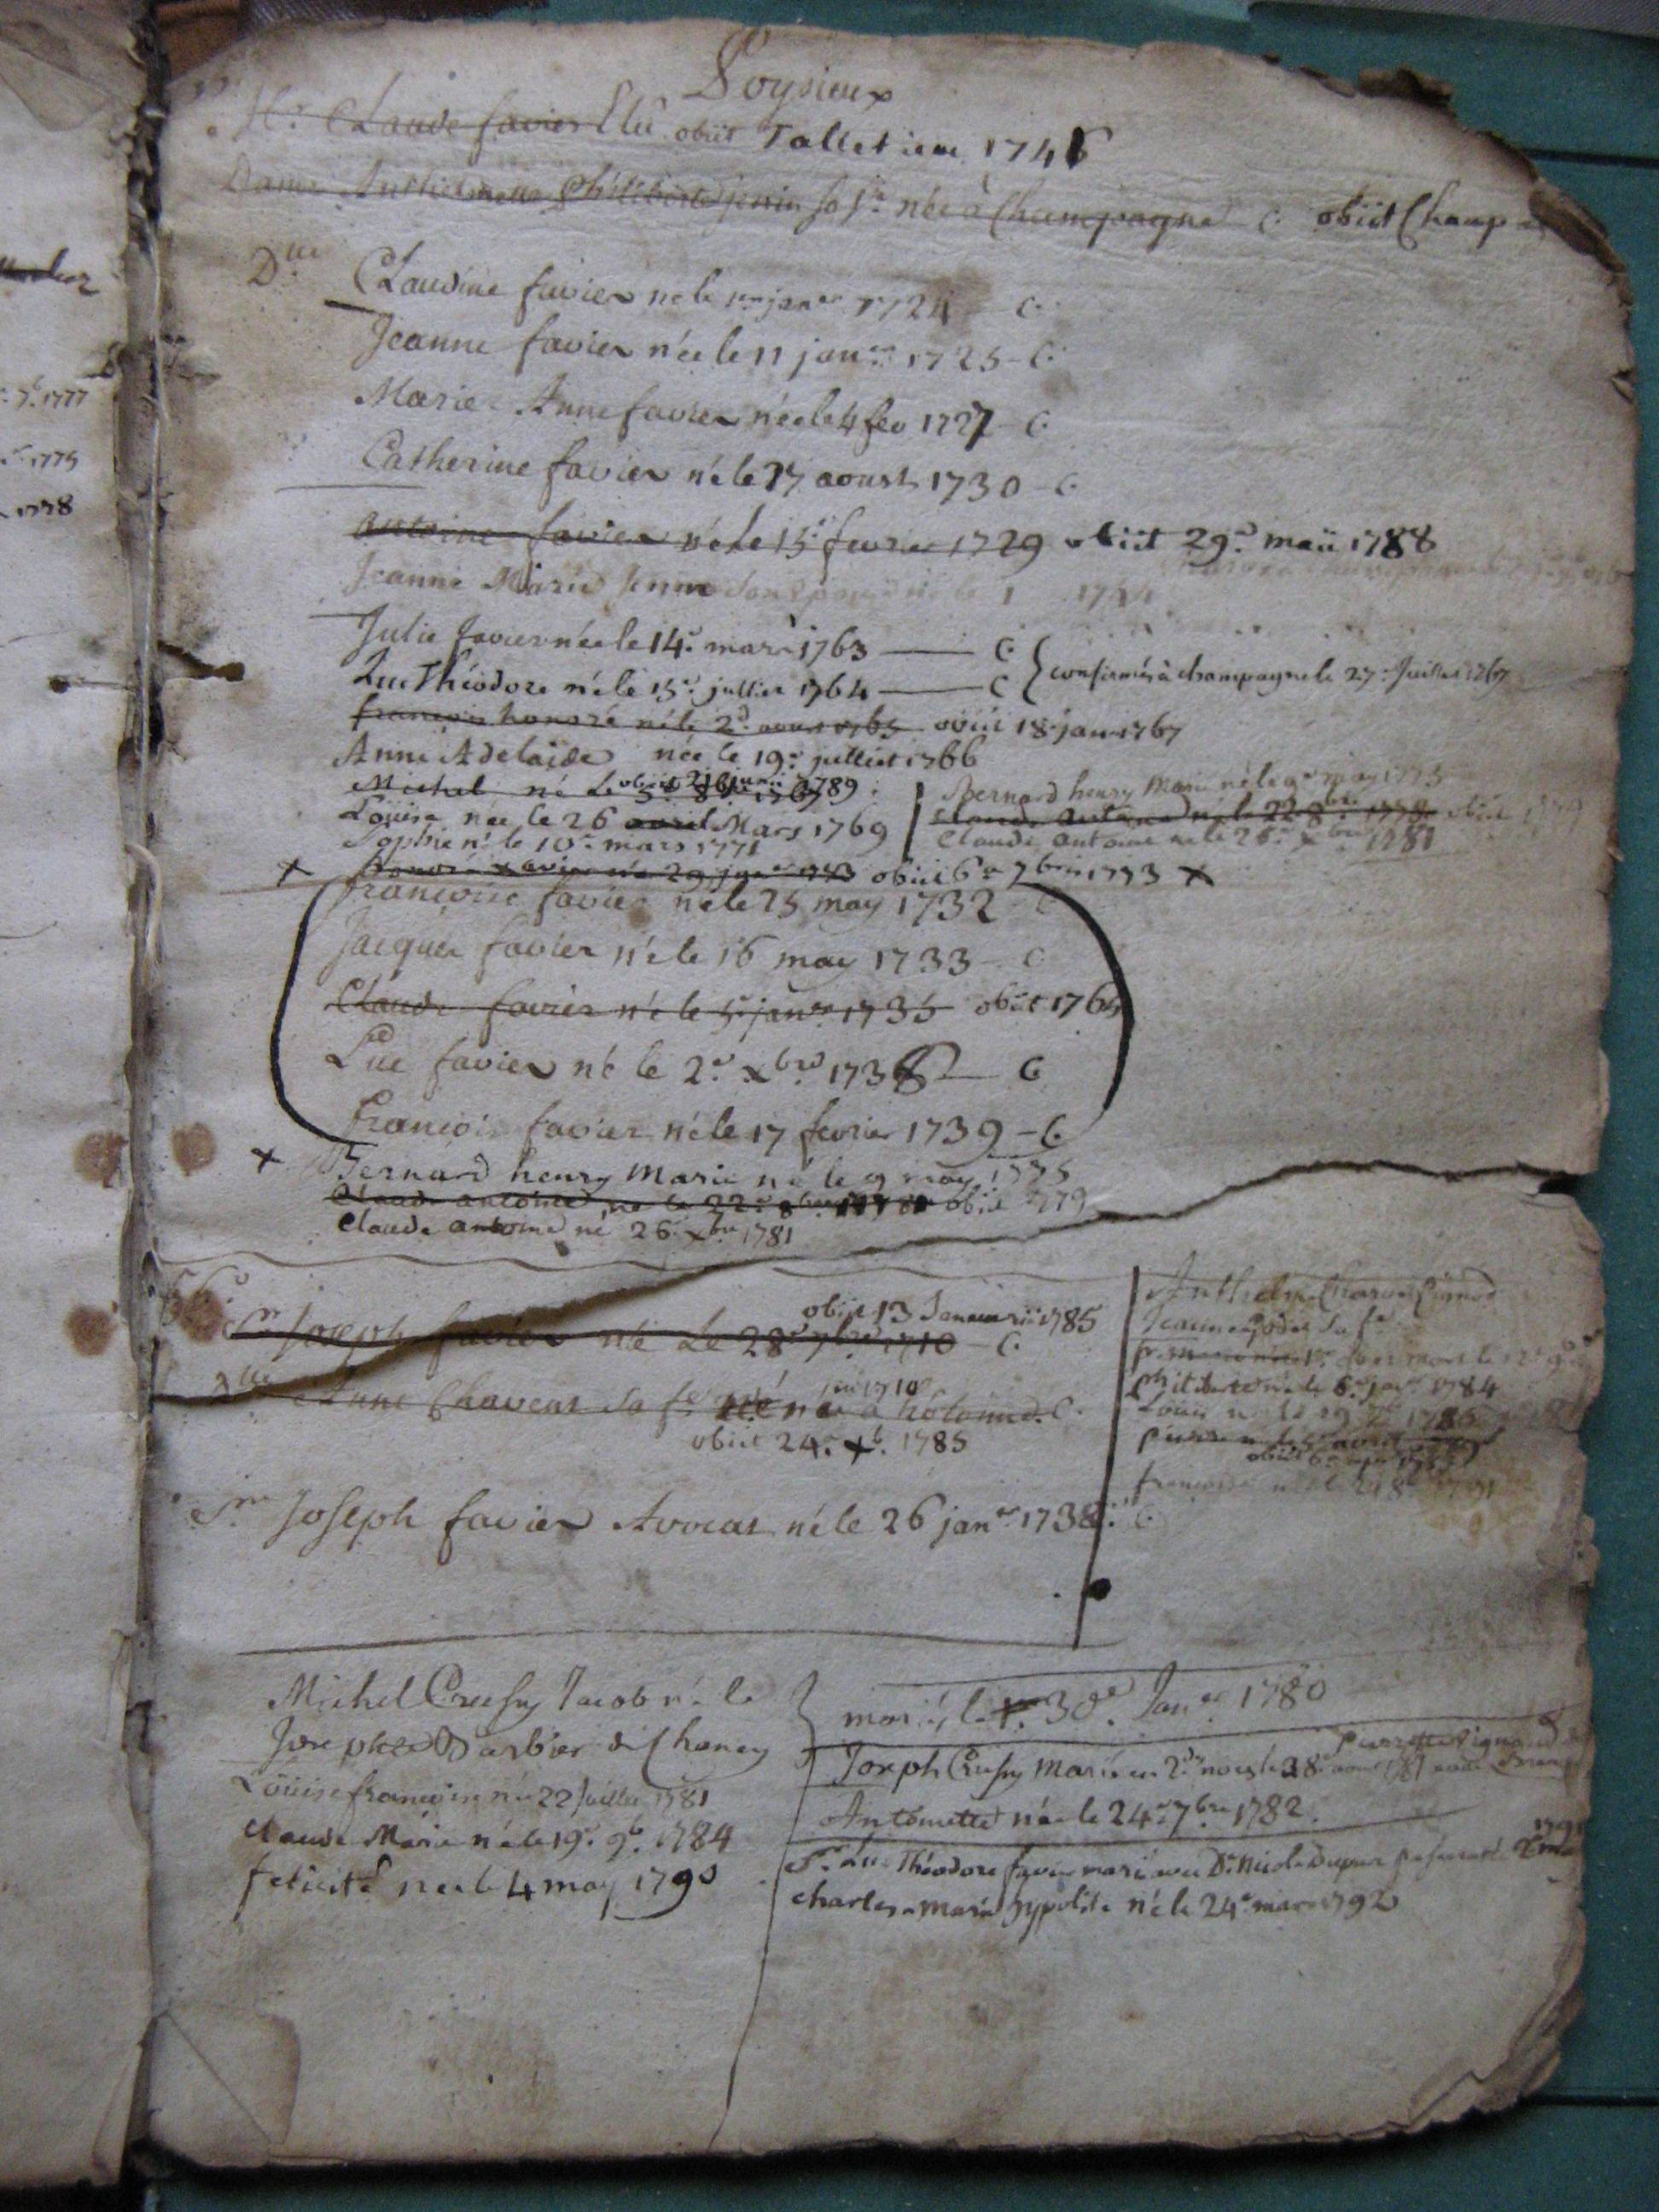 Poysieux
Sr. Claude favier Elu obiit Talletieu 1746
Dame Anthelmette Philiberte jenin sa fe. née à Champagne C. obiit Champ
Dlle Claudine favier né le janer 1724 – C.
Jeanne favier née le 11 janer 1725 – C.
Marie Anne favier née le 4 fev 1727 – C
Catherine favier né le 27 aoust 1730 – C.
antoine favier né le 15e fevrier 1729 obiit 29a maii 1788
Jeanne Marie Jenin son né le 1
Julie favier née le 14e mars 1763 —— C.
Luc Théodore né le 15e juillier 1764 —— C
confirmés à champagne le 27e Juillet 1767
françois honoré né le 2d aoust 1765 obiit 18 jan 1767
Anne Adelaide née le 19e julliet 1766
Michel né le 5e 8bre 1767 obiit junii 1789
Loüise née le 26 avril Mars 1769
Sophie né le 10e mars 1771
Bernard henry Marie né le 9e may 1775
Claude antoine né le 22e 8bre 1778 obiit
Claude antoine né le 26e xbre 1781
x honoré xavier né 29 janer 1773 obiit 6a 7bris 1773 x
françoise favier né le 25 may 1732 – C
Jacques favier né le 16 may 1733 – C
Claude favier né le 5e janer 1735 obiit 1765
Luc favier né le 2e xbre 1736 — C
françois favier né le 17 fevrier 1739 – C
x Bernard henry Marie né le 9 may 1775
Claude antoine né le 22e 8bre obiit 1779
Claude antoine né 26e xbre 1781
Sr Joseph favier né le 28e 7bre 1710 – C. obiit 13 Januarii 1785
Dlle Anne Chavent sa fe née née à hotonne C.
en 1710
obiit 24e xb. 1785
Sr Joseph favier Avocat né le 26 janer 1738. C
Anthelme
Jeanne sa fe
philiberte née le 6e janr 1784
Louis né le 29 7b 1786
pierre né le 5e avril
obiit
françoise né le
Michel Crussy Jacob né le
Josephte Barbier de Chaney
mariés le 30e Janer 1780
Loüise françoise née 22 Juillet 1781
Claude Marie né le 19e 9b. 1784
felicité née le 4 may 1790
Joseph Crussy Marié en 2des noces le 28e aoust 1781 avec pierrette vignand
Antoinette née le 24e 7bre 1782.
Sr. Luc Théodore favier marié avec De. Nicole Dupuis 1791
Charles marie hypolite né le 24e mars 1792